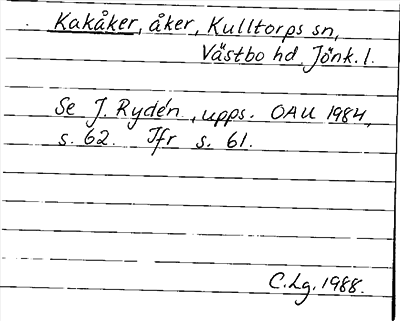 Kakåker, åker, Kulltorps sn,
Västbo hd, Jönk. l.
Se J. Rydén, upps. OAU 1984,
s. 62. Jfr s. 61.
C.Lg. 1988.